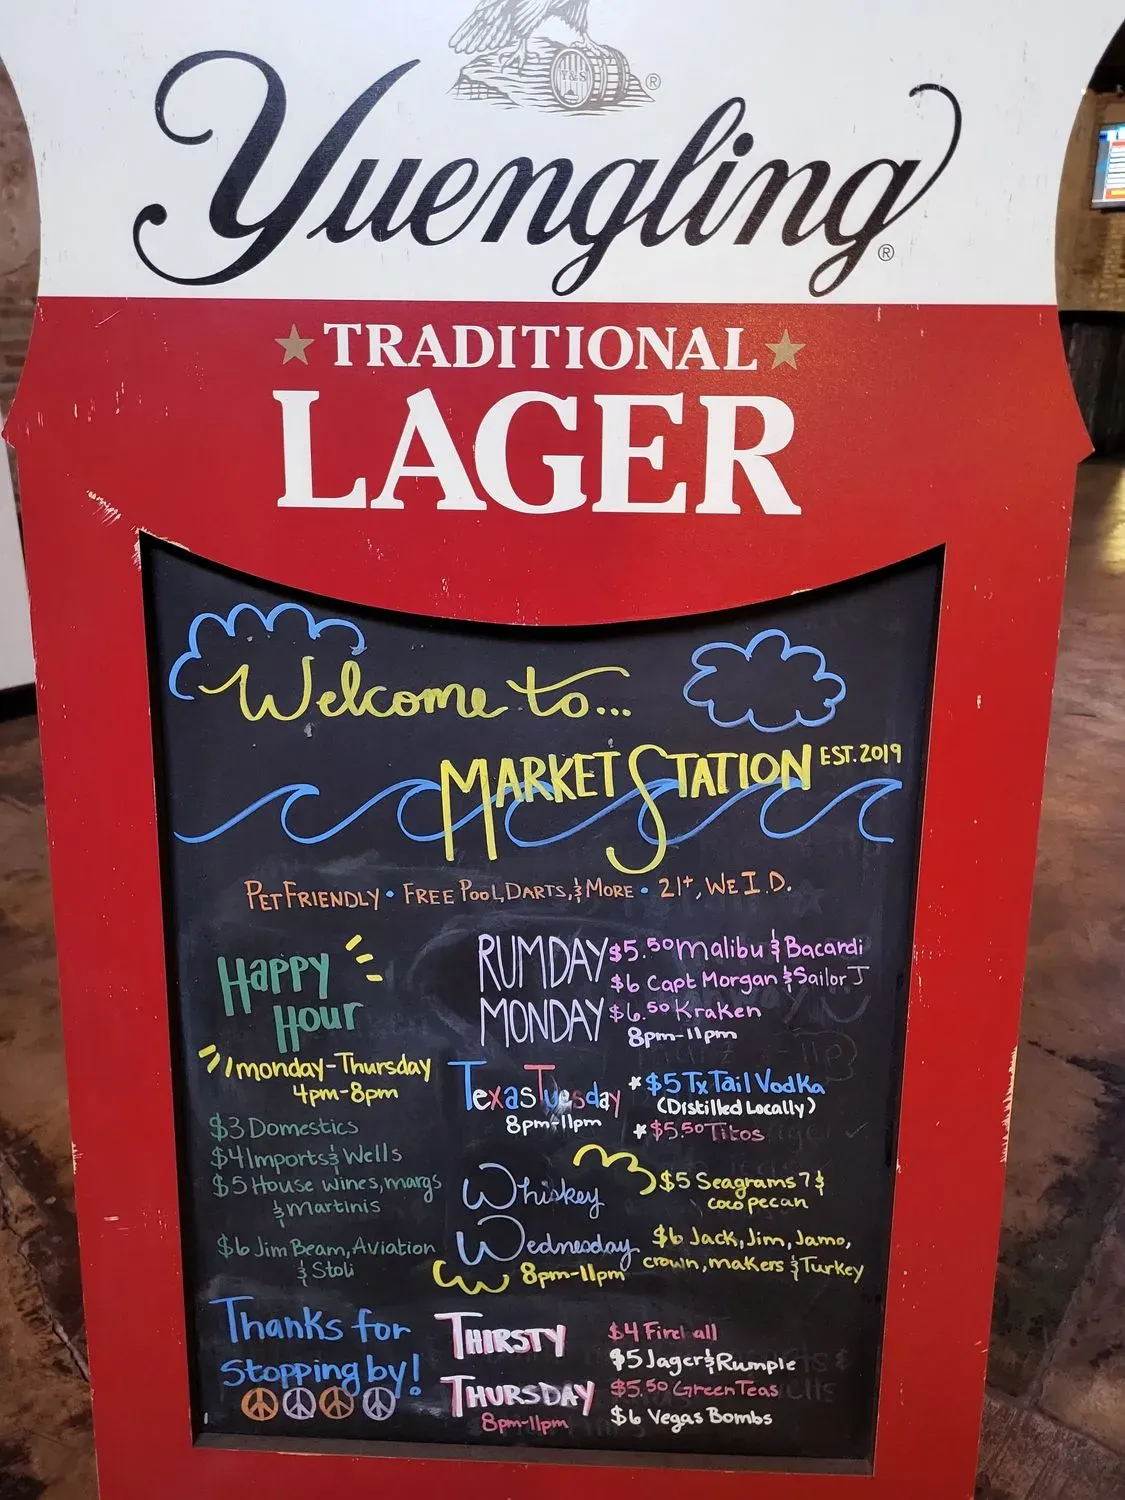 Y&S
®
Yuengling
®
TRADITIONAL
LAGER
Welcome to...
MARKET STATION EST. 2019
PET FRIENDLY • FREE POOL, DARTS, & MORE • 21+, WE I.D.
Happy
Hour
monday-Thursday
4pm-8pm
$3 Domestics
$4 Imports & Wells
$5 House wines, margs
& martinis
$6 Jim Beam, Aviation
& Stoli
Thanks for
stopping by!
RUMDAY $5.50 Malibu & Bacardi
$6 Capt Morgan & Sailor J
MONDAY $6.50 Kraken
8pm-11pm
Texas Tuesday
8pm-11pm
* $5 Tx Tail Vodka
(Distilled Locally)
* $5.50 Titos
Whiskey
Wednesday
8pm-11pm
$5 Seagrams 7 &
coco pecan
$6 Jack, Jim, Jamo,
crown, makers & Turkey
THIRSTY
THURSDAY
8pm-11pm
$4 Fireball
$5 Jager & Rumple
$5.50 Green Teas
$6 Vegas Bombs